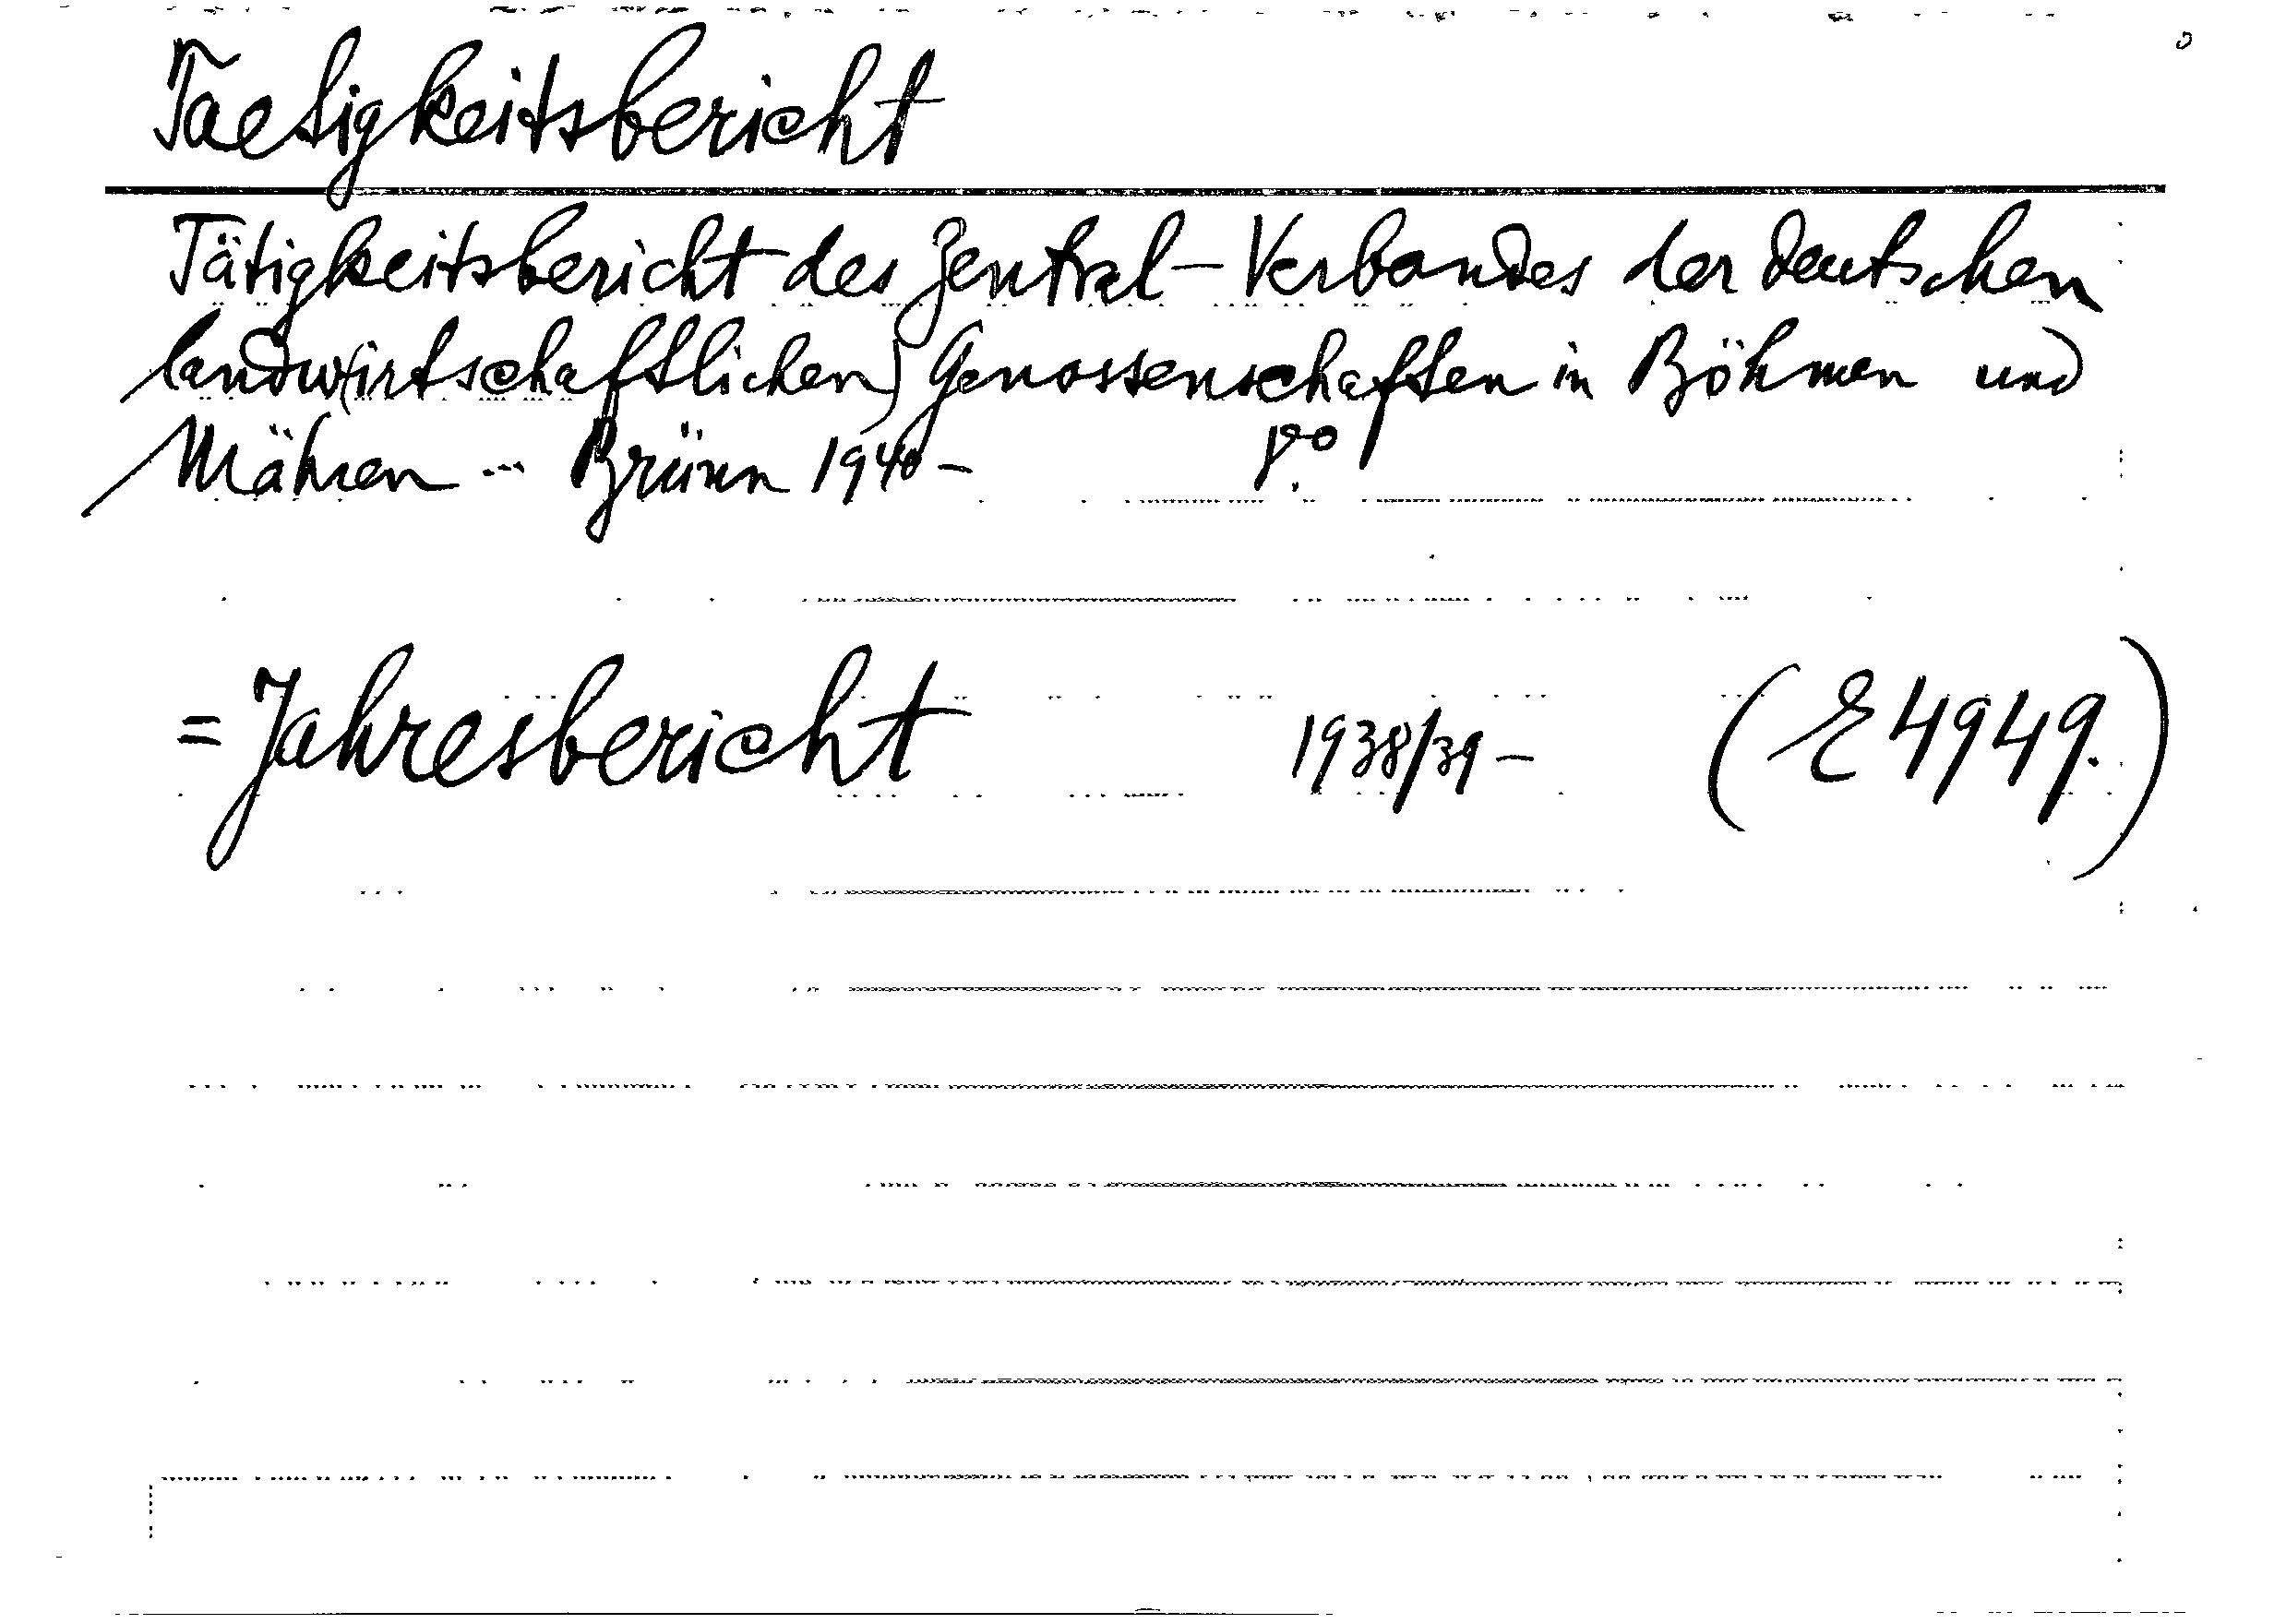 Taetigkeitsbericht
Tätigkeitsbericht des Zentral-Verbandes der deutschen
landw(irtschaftlichen) Genossenschaften in Böhmen und
Mähren - Brünn 1940 - 8°
= Jahresbericht 1938/39 - (E 4949.)